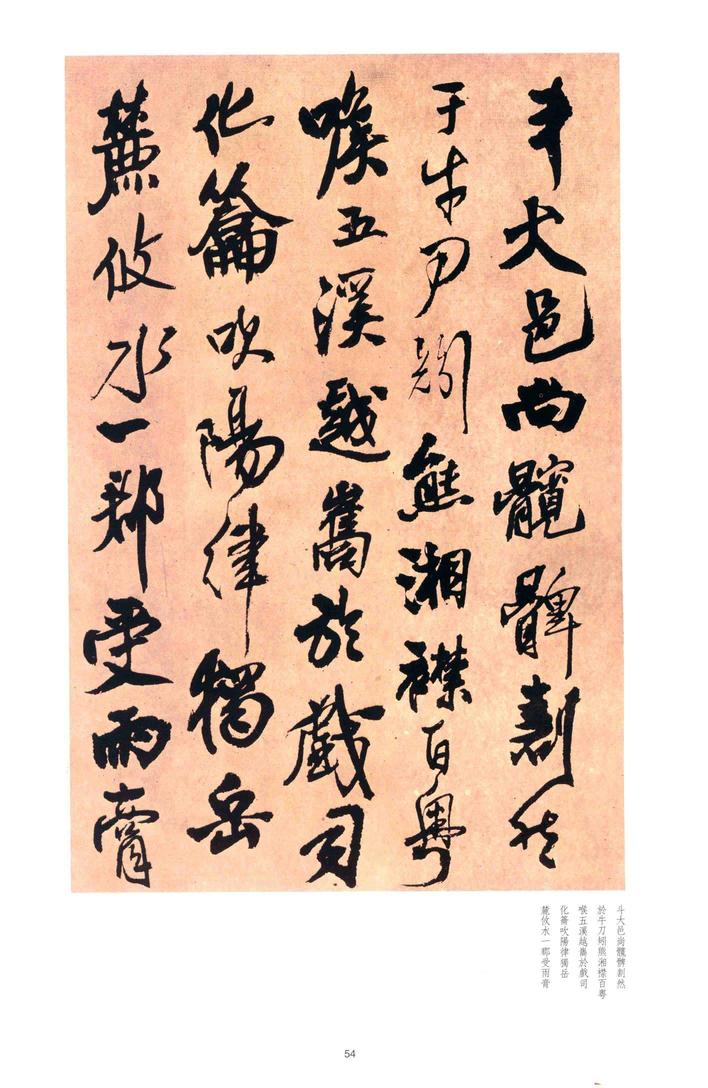 斗大邑尚髖髀割然
于牛刀矧熊湘襟百粤
喉五溪越巂於戲司
化籥吹陽律獨岳
麓攸水一郡受雨膏
斗大邑尚髖髀割然
於牛刀矧熊湘襟百粤
喉五溪越巂於戲司
化籥吹陽律獨岳
麓攸水一郡受雨膏
54